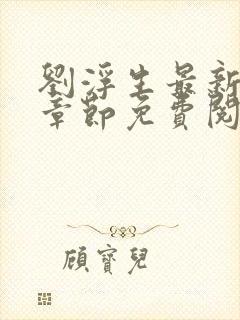 劉浮生最新
章節免費閱
顧寶兒